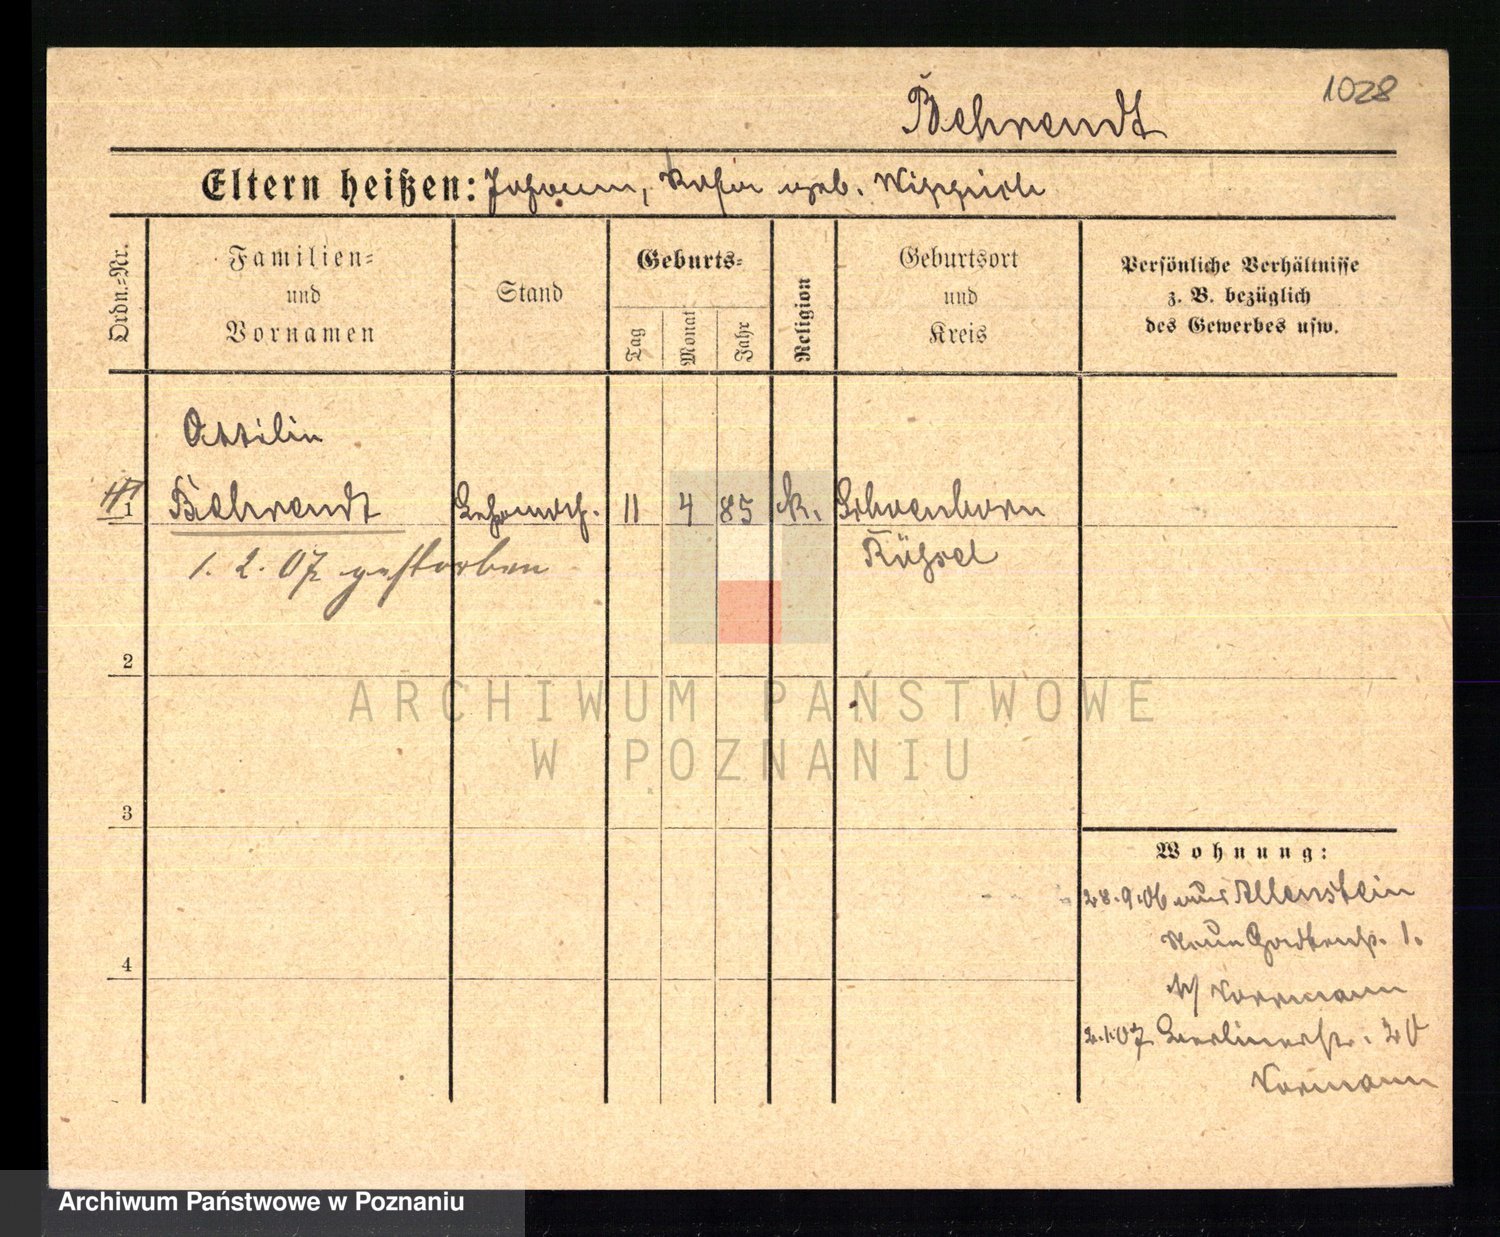 1028
Behrendt
Eltern heißen: Johann, geb.
Ordn.=Nr.
Familien=
und
Vornamen
Stand
Geburts=
Tag
Monat
Jahr
Religion
Geburtsort
und
Kreis
Persönliche Verhältnisse
z. B. bezüglich
des Gewerbes usw.
Ottilie
1 Behrendt 11 4 85 k.
1. 2. 07 gestorben Rößel
2
ARCHIWUM PAŃSTWOWE
W POZNANIU
3
Wohnung:
28.9.06 aus Allenstein
Neue Gartenstr. 1.
4
b/ Kormann
2.1.07 Berlinerstr. 20
Kormann
Archiwum Państwowe w Poznaniu